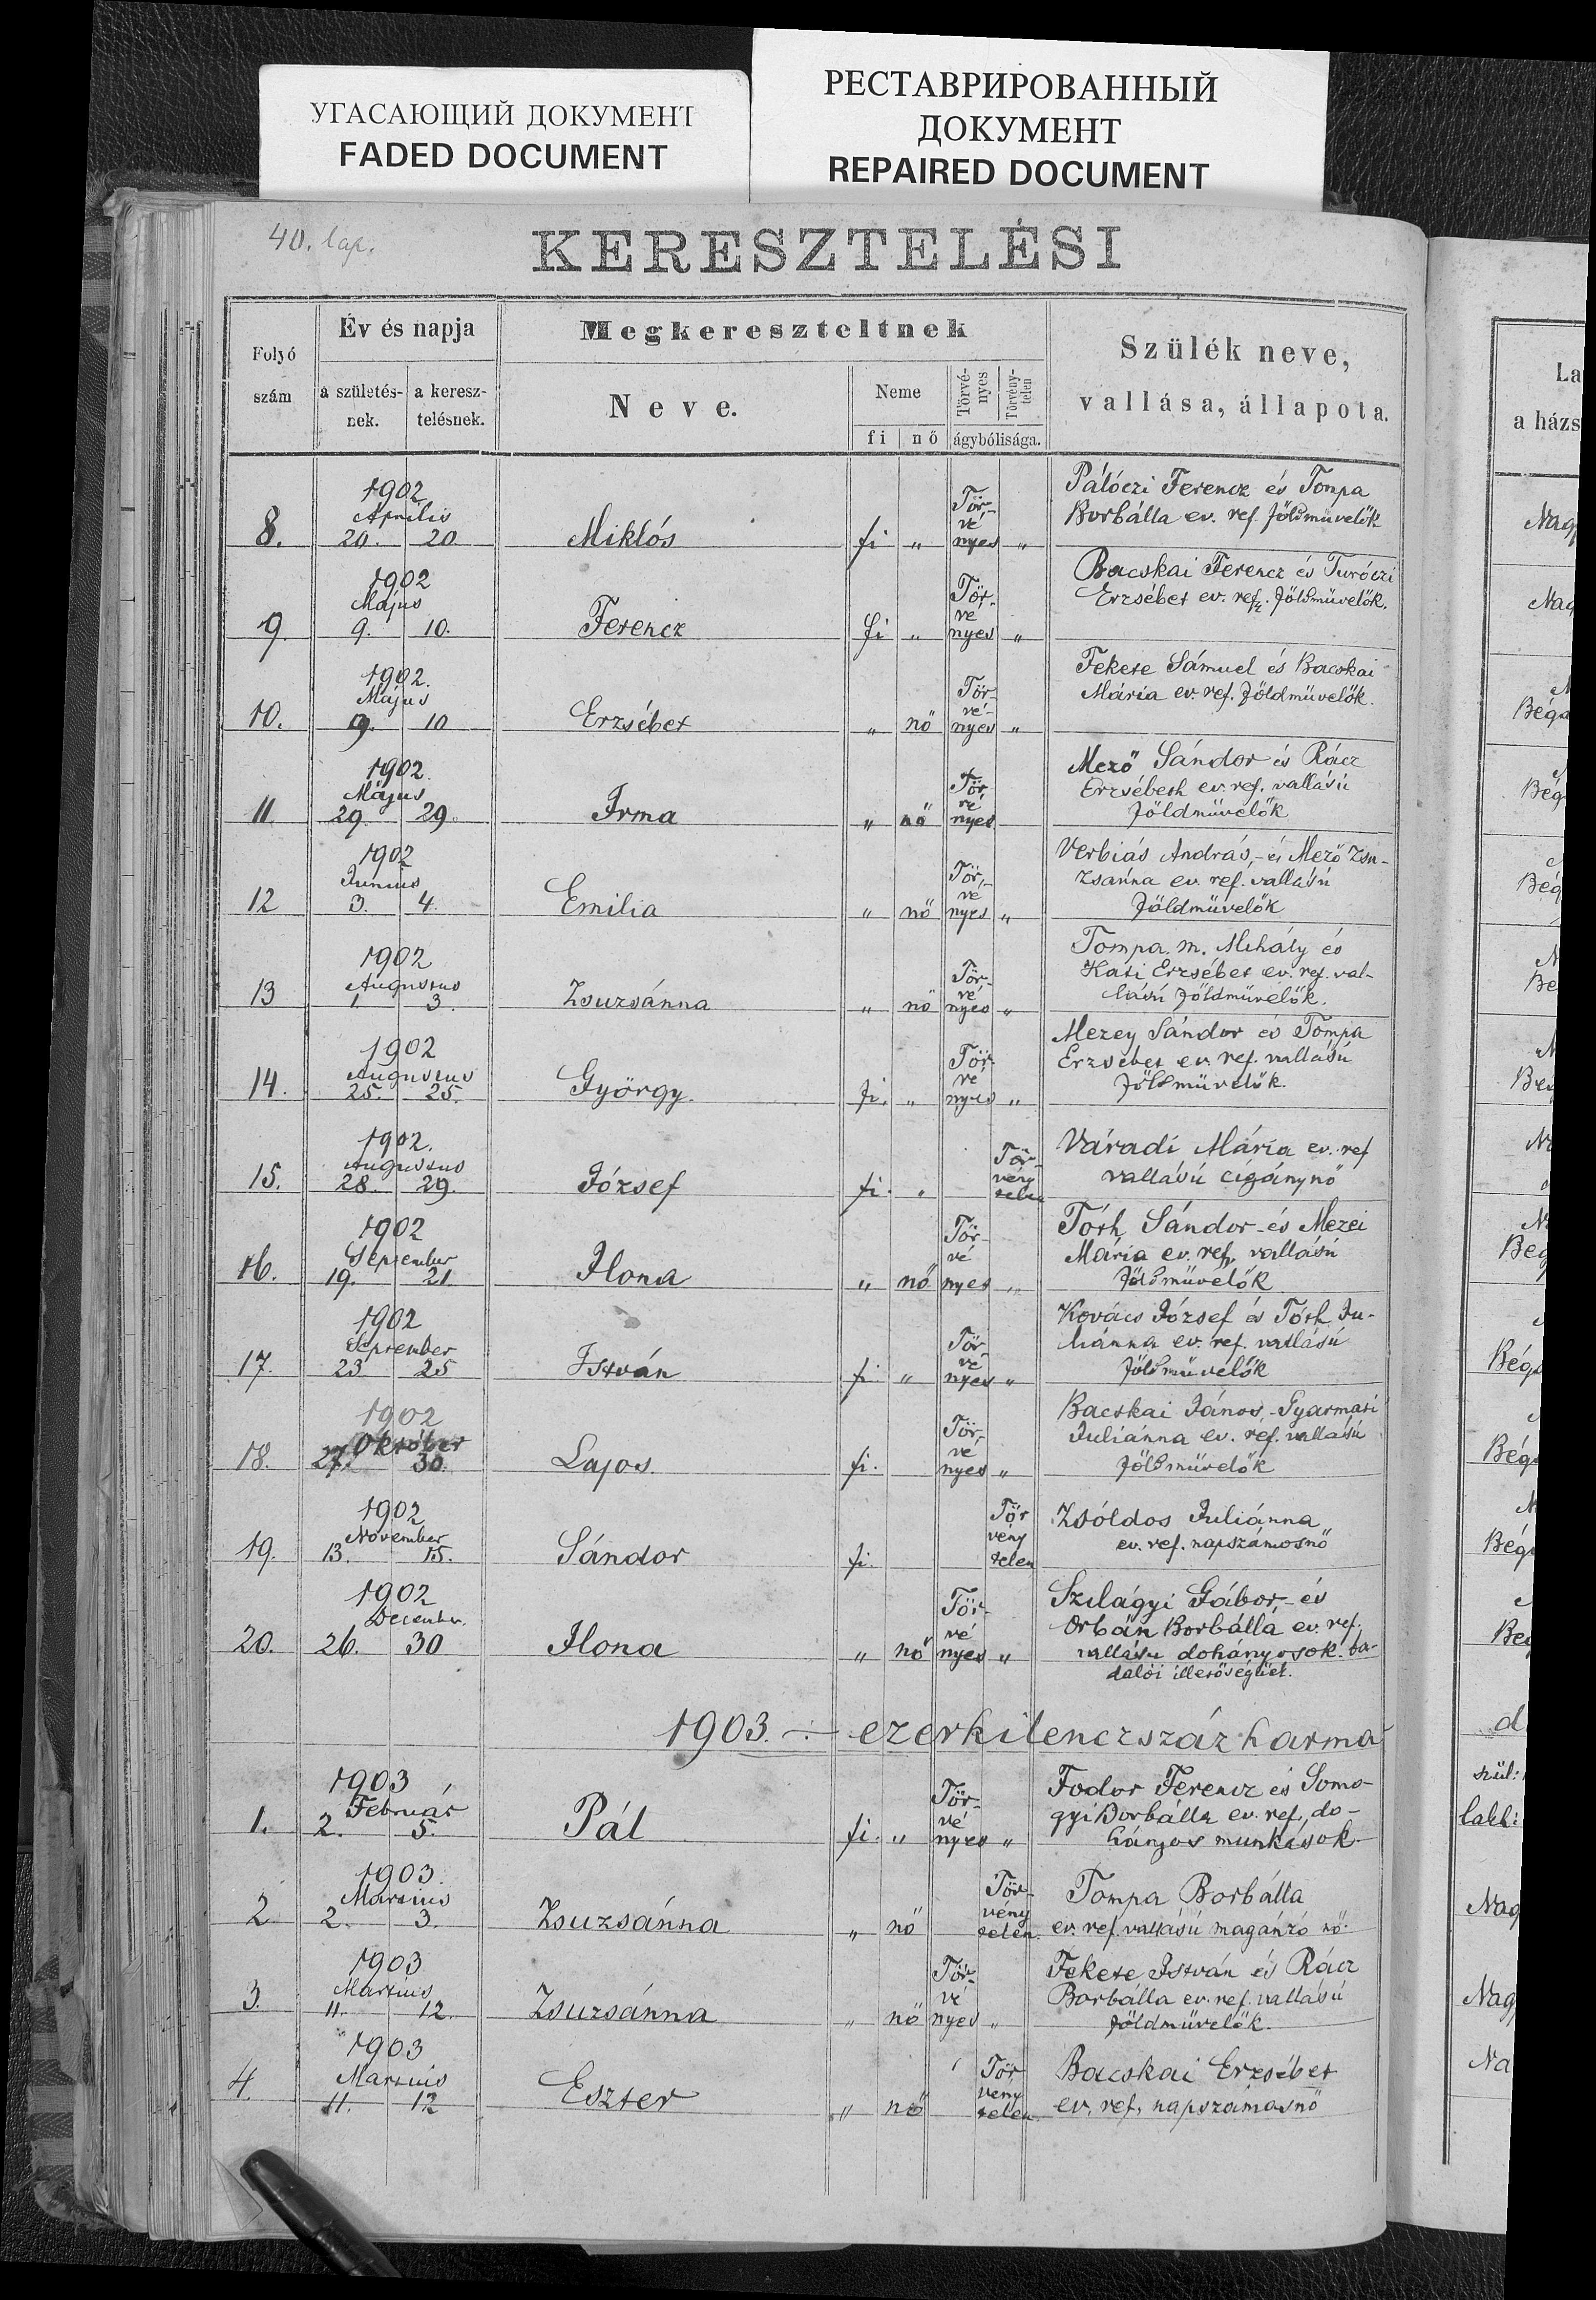 УГАСАЮЩИЙ ДОКУМЕНТ
FADED DOCUMENT
РЕСТАВРИРОВАННЫЙ
ДОКУМЕНТ
REPAIRED DOCUMENT
40. lap.
KERESZTELÉSI
Folyó
szám
Év és napja
a születés-
nek.
a keresz-
telésnek.
Megkereszteltnek
Neve.
Neme
fi nő
Törvé-
nyes
Törvény-
telen
ágybólisága.
Szülék neve,
vallása, állapota.
La
a házs
1902
Április
8. 20. 20. Miklós fi „ Tör-
vé
nyes „
Pálóczi Ferencz és Tompa
Borbálla ev. ref. földmüvelők
Nag
1902
Május
9. 9. 10. Ferencz fi „ Tör-
vé
nyes „
Bacskai Ferencz és Turóczi
Erzsébet ev. ref. földmüvelők.
Nag
1902.
Május
10. 9. 10 Erzsébet „ nő Tör-
vé-
nyes „
Fekete Sámuel és Bacskai
Mária ev. ref. földmüvelők.
Béga
1902.
Május
11. 29. 29. Irma „ nő Tör
vé
nyes
Mező Sándor és Rácz
Erzsébeth ev. ref. vallású
földmüvelők
Bég
1902
Junius
12 3. 4. Emilia „ nő Tör,-
vé
nyes „
Verbiás András,- és Mező Zsu-
zsanna ev. ref. vallású
földmüvelők
Bég
1902
Augustus
13 1. 3. Zsuzsánna „ nő Tör-
vé
nyes „
Tompa. m. Mihály és
Kati Erzsébet ev. ref. val-
lású földmüvelők.
Be
1902
Augustus
14. 25. 25. György. fi. „ Tör-
vé
nyes „
Mezey Sándor és Tompa
Erzsébet ev. ref. vallású
földmüvelők.
1902.
Augustus
15. 28. 29. József fi. „ Tör-
vény
telen
Váradi Mária ev. ref
vallású cigánynő
1902
September
16. 19. 21. Ilona „ nő Tör-
vé
nyes „
Tóth Sándor és Mezei
Mária ev. ref. vallású
földmüvelők
Beg
1902
September
17. 23 25 István fi. „ Tör-
vé
nyes „
Kovács József és Tóth Ju-
liánna ev. ref. vallású
földmüvelők
Bég
1902
Október
18. 27. 30. Lajos. fi. Tör,-
vé
nyes „
Bacskai János,- Gyarmati
Julianna ev. ref. vallású
földmüvelők
Bég
1902
November
19. 13. 15. Sándor fi. Tör
vény
telen
Zsóldos Juliánna
ev. ref. napszámosnő
Bég
1902
December.
20. 26. 30 Ilona „ nő Tör-
vé
nyes „
Szilágyi Gábor,- és
Orbán Borbálla ev. ref.
vallásu dohányosok.
illetőségüek.
1903. ezerkilenczszázharma
1903
Február
1. 2. 5. Pál fi. „ Tör-
vé
nyes „
Fodor Ferencz és Somo-
gyi Borbálla ev. ref. do-
hányos munkások
szül:
lakh:
1903.
Martius
2 2. 3. Zsuzsánna „ nő Tör-
vény
telen.
Tompa Borbálla
ev. ref. vallású magánzó nő.
Nag
1903
Martius
3. 11. 12. Zsuzsánna „ nő Tör-
vé
nyes „
Fekete István és Rácz
Borbálla ev. ref. vallású
földmüvelők.
Nag
1903
Martius
4. 11. 12 Eszter „ nő Tör
vény
telen
Bacskai Erzsébet
ev. ref. napszámosnő
Na